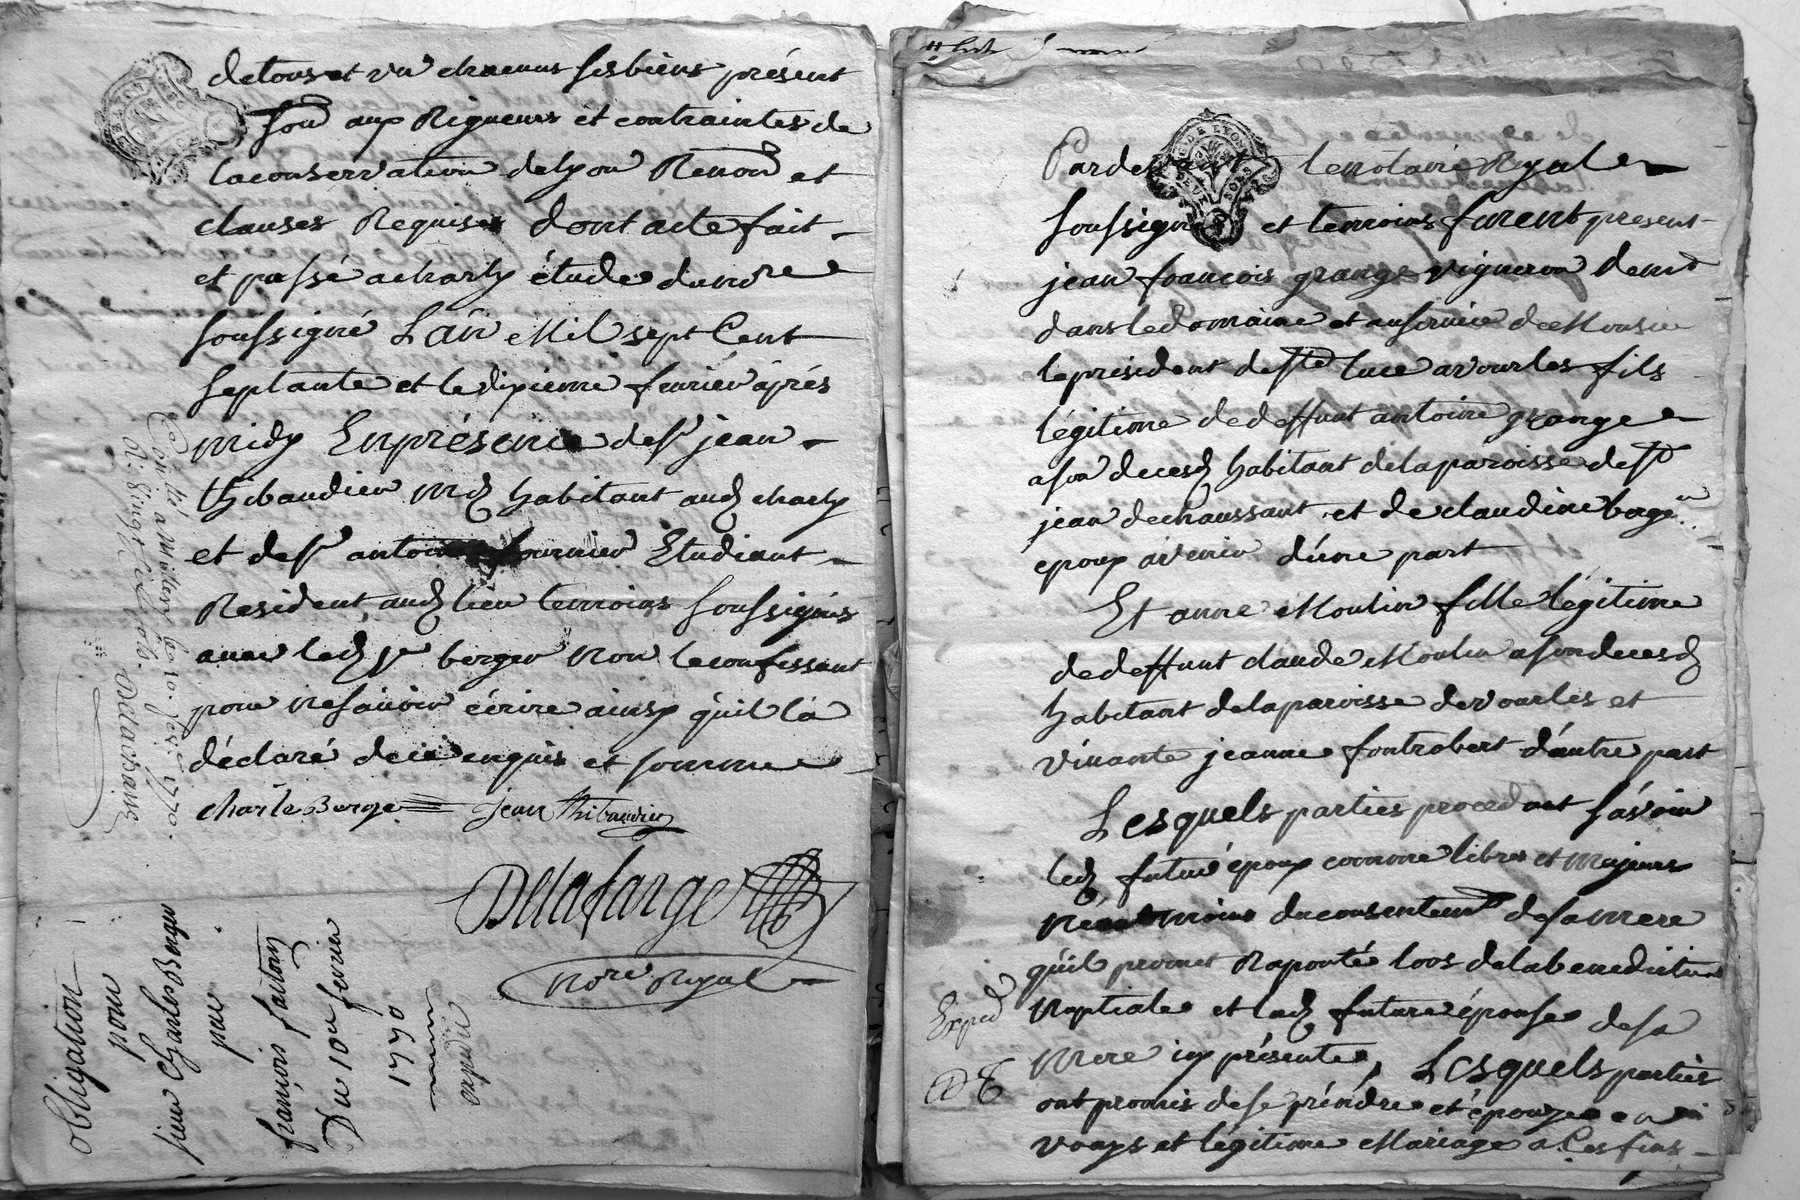 detous et un chacuns ses biens présent
soud aux Rigueurs et contraintes de
la conservation de lyon Renond et
clauses Requises dont acte fait
et passé a charly étude du nore
soussigné L'an Mil sept Cent
septante et le dixieme fevrier après
midy En présence de Sr jean
thibaudier Md habitant aud charly
et de Sr antoine fournier Etudiant
Resident aud lieu temoins soussignés
avec led Sr berger Non le confessant
pour ne savoir écrire ainsy qu'il la
déclaré de ce enquis et sommé
charle Berge jean thibaudier
Delafarge
Nore Royal
Contlé a Millery le 10 fevr 1770
Delachanz
Obligation
pour
sieur Charles Berger
par
françois
Du 10e fevrier
1770
expedié
Pardevant le notaire Royal
soussigné et temoins furent present
jean françois grange vigneron demt
dans le domaine et au service de Monsieur
le président de Ste luce a vourles fils
légitime de deffunt antoine grange
a son deces habitant de la paroisse de St
jean de chaussant et de claudine
epoux avenir d'une part
Et anne Moulin fille légitime
de deffunt claude Moulin a son deces
habitant de la paroisse de vourles et
vivante jeanne fontrobert d'autre part
Lesquels parties procedant savoir
led futur époux comme libre et Majeur
néeamoins du consentemt de sa mere
qu'il promet Raporté lors de la benediction
Nuptiale et lad future épouse de sa
Mere icy présente, Lesquels parties
ont promis de se préndre et épouzer en
vrays et légitime Mariage a Ces fins
Exped
D